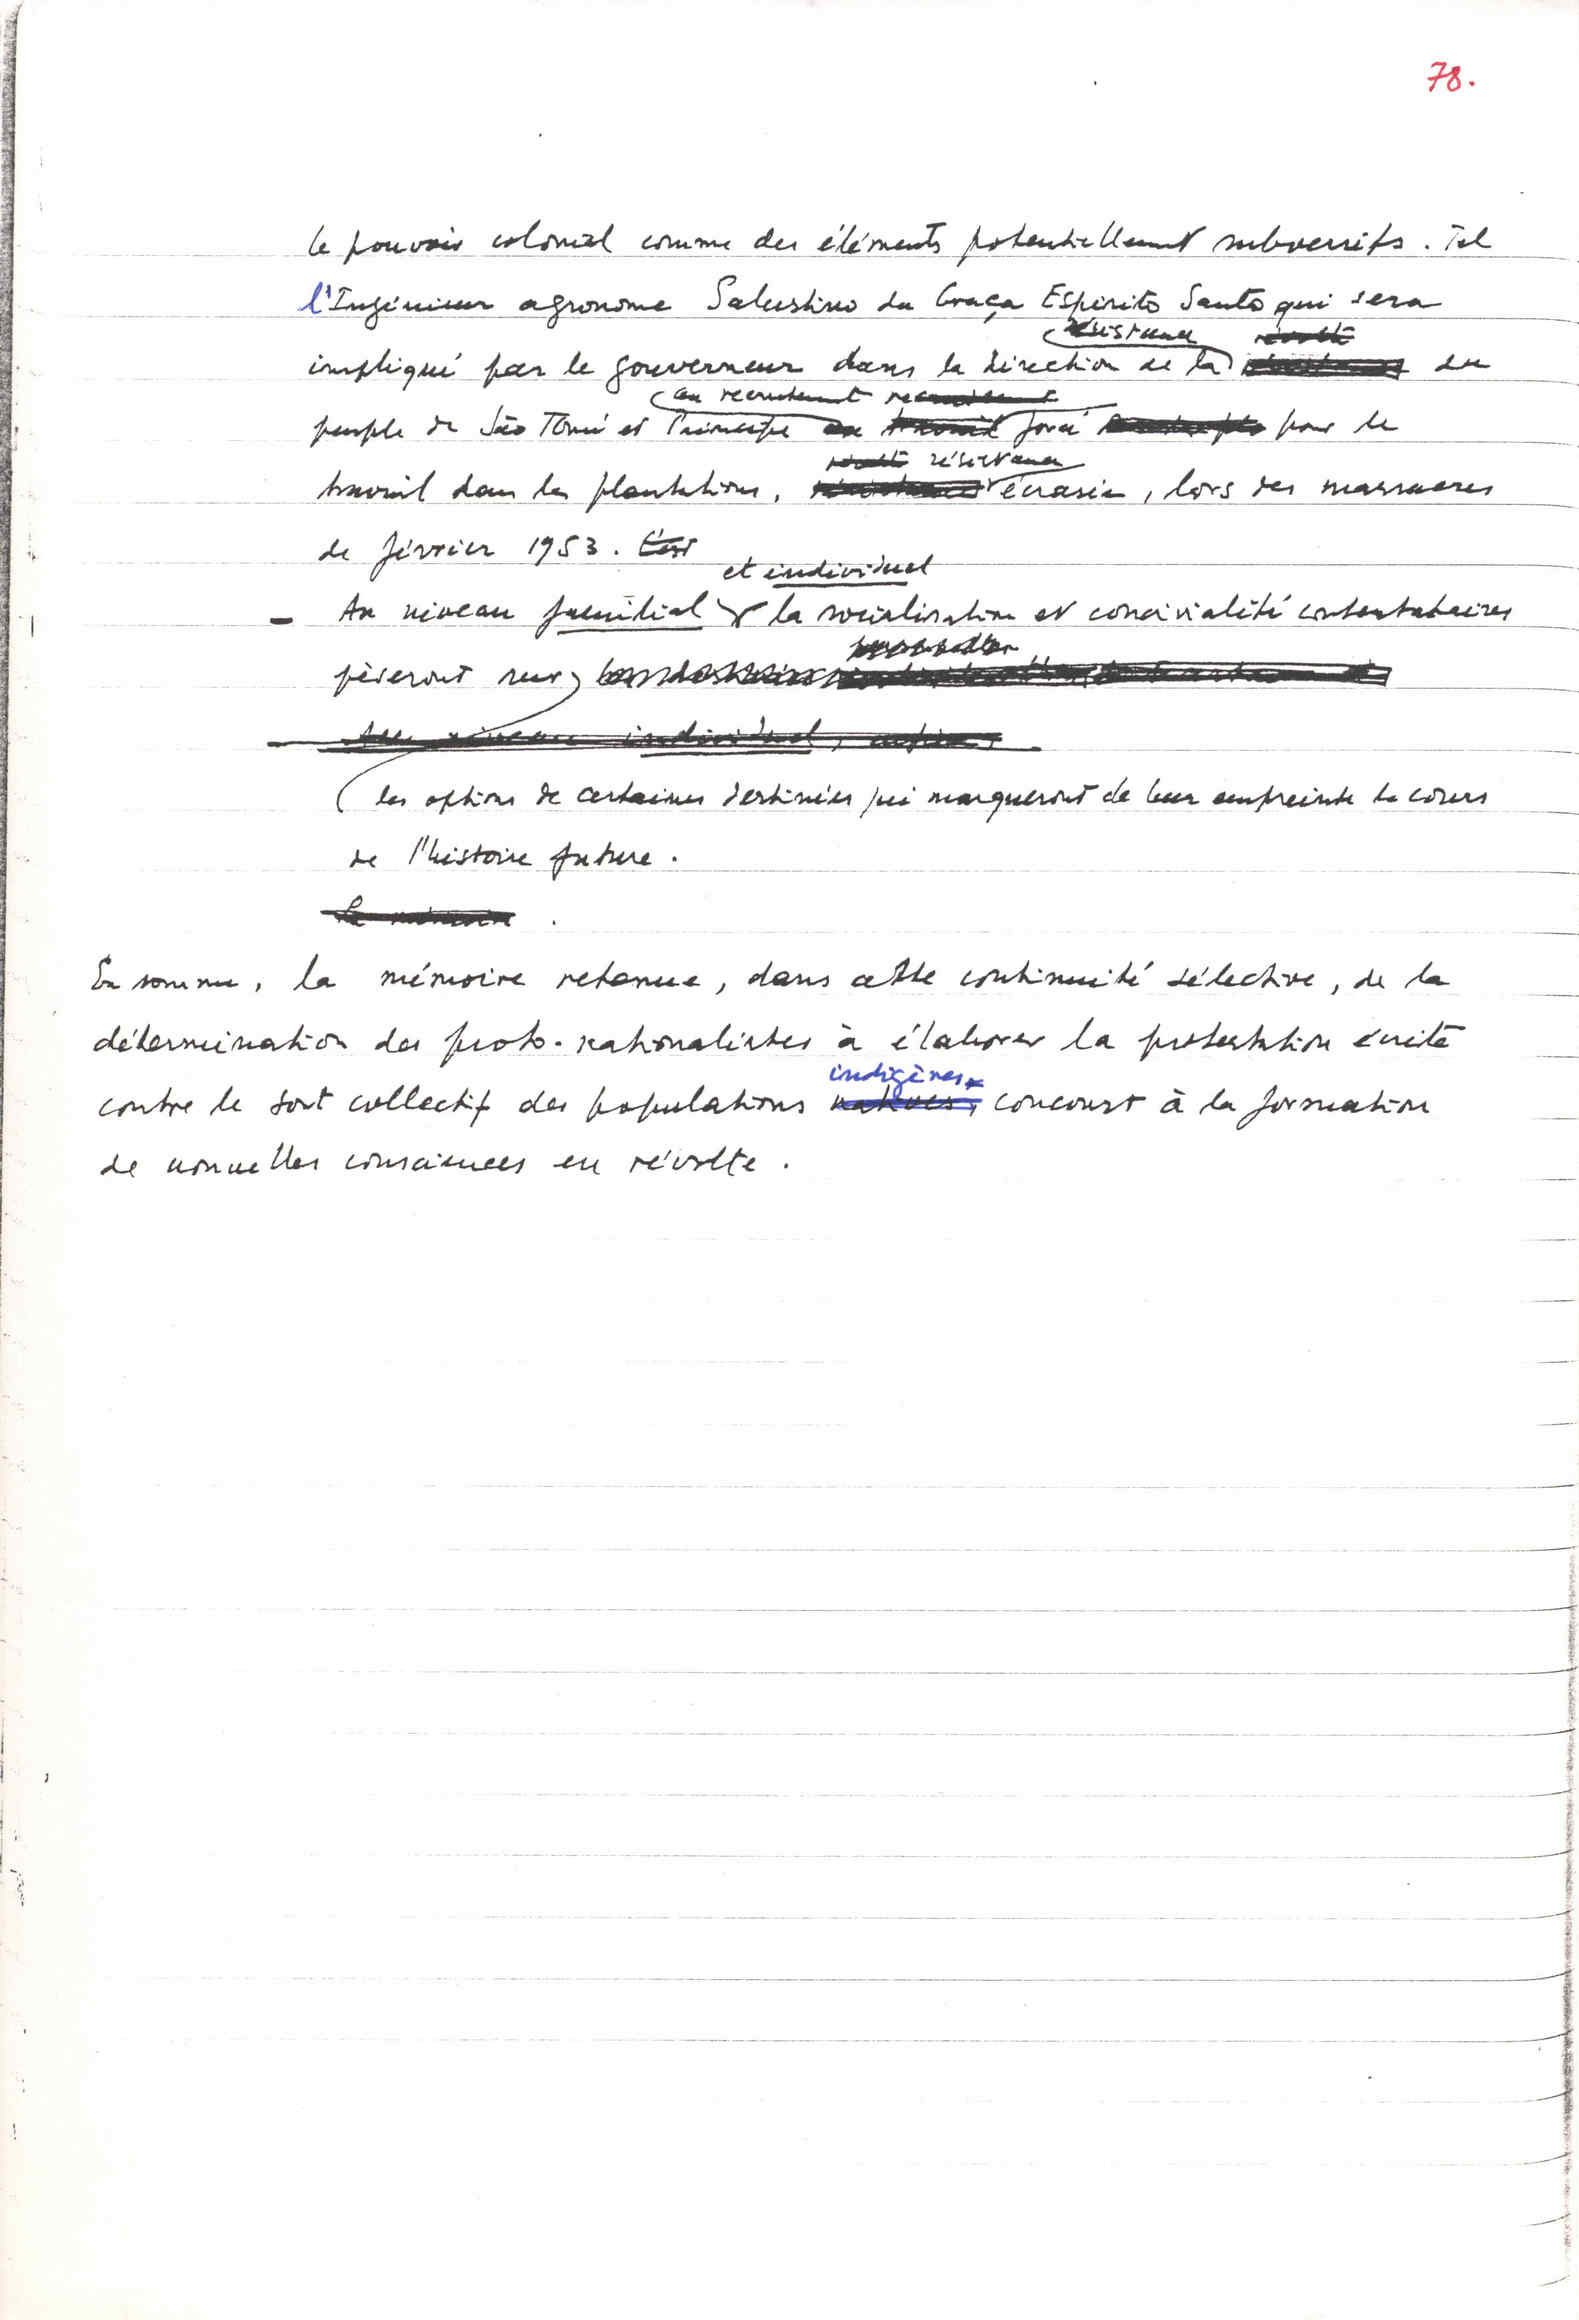 78.
le pouvoir colonial comme des éléments potentiellement subversifs. Tel
l'Ingénieur agronome Salustino da Graça Espirito Santo qui sera
résistance révolte
impliqué par le gouverneur dans la direction de la du
au recrutement
peuple de São Tomé et Principe au travail forcé pour le
révolte résistance
travail dans les plantations, écrasée, lors des massacres
de février 1953. C'est
et individuel
- Au niveau familial la socialisation et convivialité contestataires
pèseront sur
Au niveau individuel, enfin,
les options de certaines destinées qui marqueront de leur empreinte le cours
de l'histoire future.
La mémoire .
En somme, la mémoire retenue, dans cette continuité sélective, de la
détermination des proto-nationalistes à élaborer la protestation écrite
indigènes
contre le sort collectif des populations natives, concourt à la formation
de nouvelles consciences en révolte.